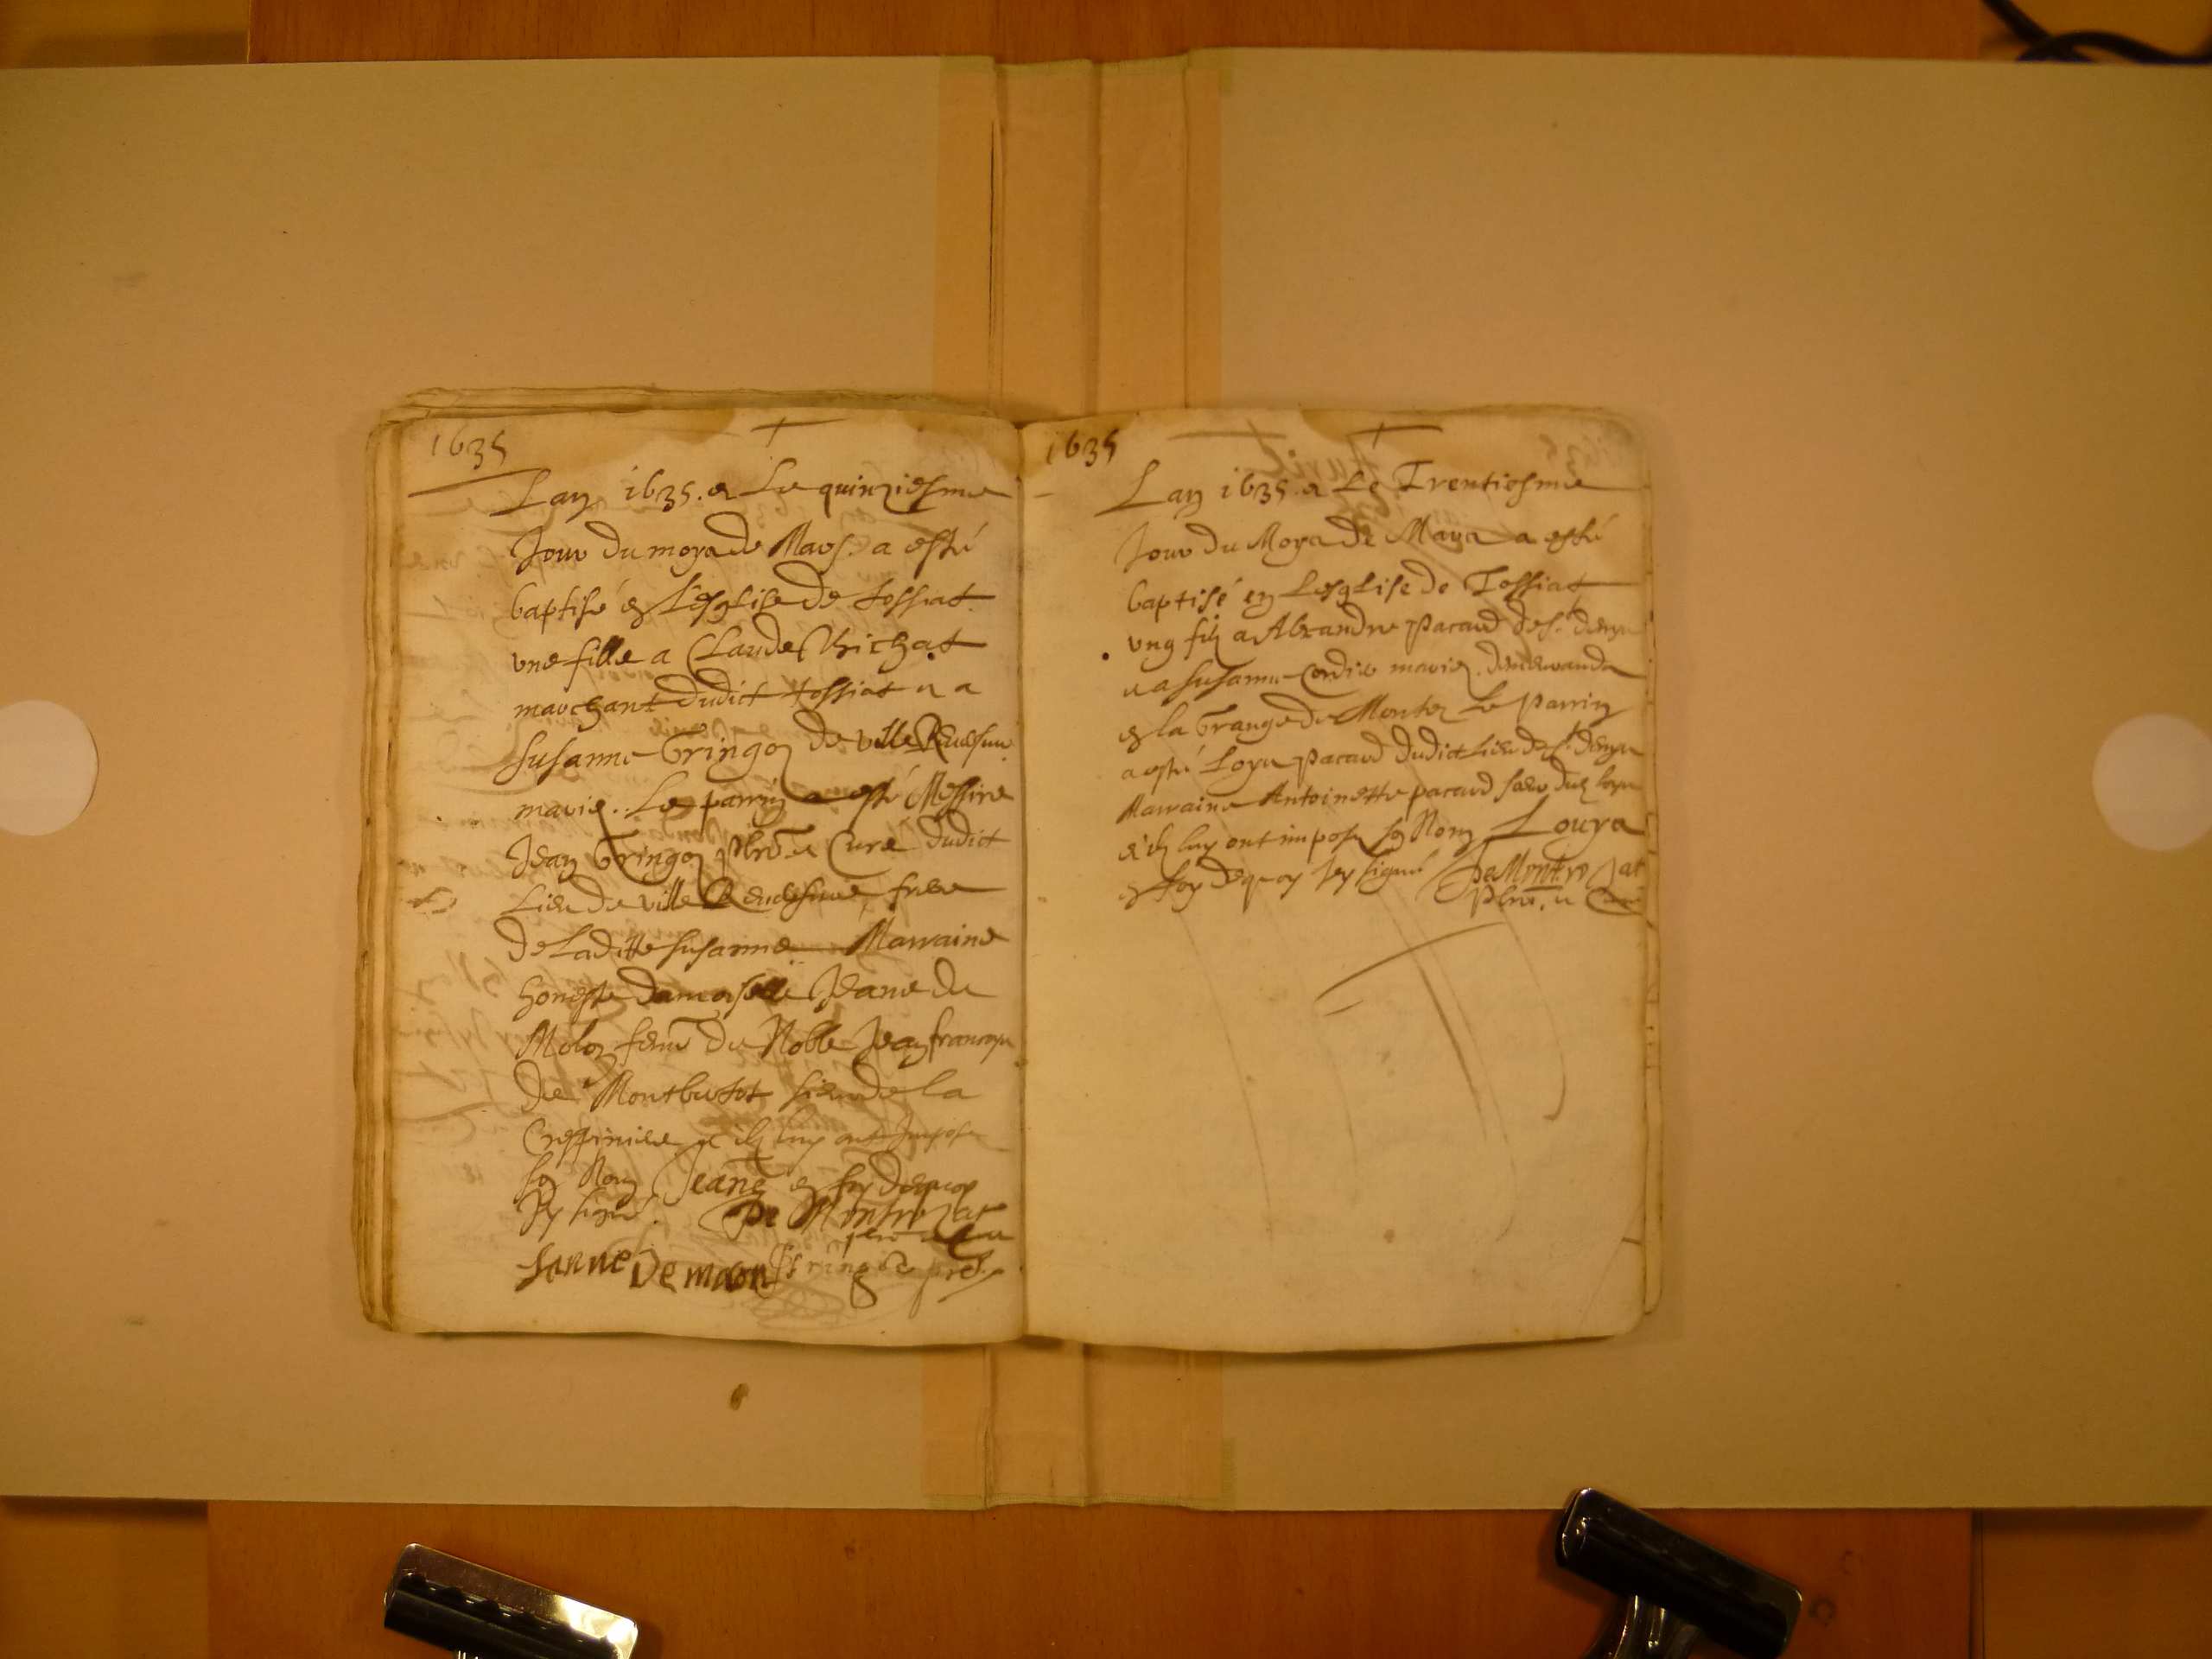 1635
Lan 1635. et Le quinziesme
Jour du moys de Mars. a esté
baptisé en L'esglise de tossiat
une fille a Claude Chichat
marchant dudict tossiat et a
susanne Gringoz de ville Reversure
mariez. Le parrin a esté Messire
Jean Gringoz pbre. et Curé dudict
Lieu de ville Reversure, frere
de Laditte susanne. Marraine
honeste damoiselle Jeane de
feme de Noble Jean francoys
de sieur de la
et ilz luy ont Impose
son Nom Jeane en foy dequoy
Jey signé. De Montrozat
Janne De
1635
Lan 1635. et Le Trentiesme
Jour du Moys de Mars a esté
baptisé en Lesglise de Tossiat
ung filz a Alexandre Pacaud de St. denys
et a Susanne mariez. demeurands
en la Grange de Le Parrin
a esté Loys Pacaud dudict Lieu de St. denys
Marraine Antoinette pacaud soeur dud. loys
et ilz luy ont impose son Nom Louys
en foy dequoy Jey signé De Montrozat
Pbre. et Curé